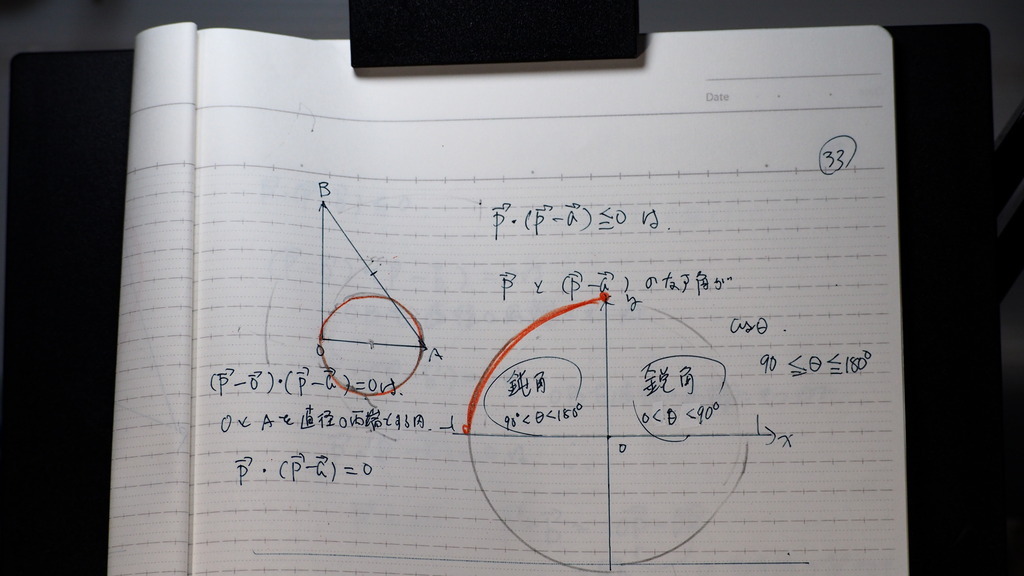 Date
33
B
p⃗・(p⃗-a⃗)≦0 は、
p⃗ と (p⃗-a⃗) のなす角が
y
cosθ.
90 ≦θ≦180°
O
A
(p⃗-o⃗)・(p⃗-a⃗)=0は、
OとAを直径の両端とする円.
p⃗・(p⃗-a⃗)=0
鈍角
90°<θ<180°
鋭角
0<θ<90°
-1
1
x
O